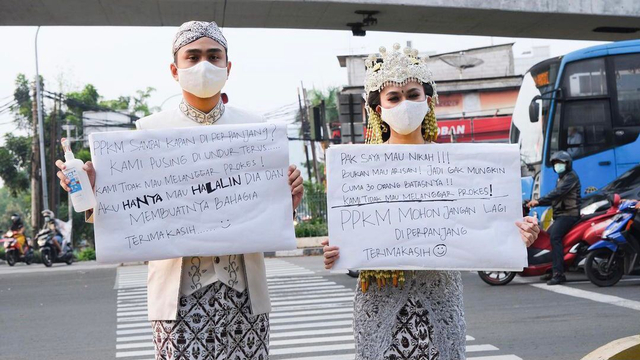 PPKM SAMPAI KAPAN DI PERPANJANG?
KAMI PUSING DI UNDUR TERUS....
KAMI TIDAK MAU MELANGGAR PROKES!
AKU HANYA MAU HALALIN DIA DAN
MEMBUATNYA BAHAGIA
TERIMAKASIH.......
PAK SAYA MAU NIKAH!!!
BUKAN MAU ARISAN! JADI GAK MUNGKIN
CUMA 30 ORANG BATASNYA!!
KAMI TIDAK MAU MELANGGAR PROKES!
PPKM MOHON JANGAN LAGI
DIPERPANJANG
TERIMAKASIH